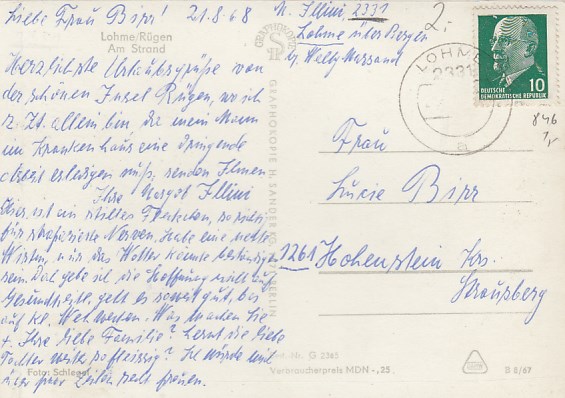 Liebe Frau Birr! 21.8.68
Lohme/Rügen
Am Strand
Herzlichste Urlaubsgrüße von
der schönen Insel Rügen, wo ich
z. Zt. allein bin, da mein Mann
im Krankenhaus eine dringende
Arbeit erledigen muß, senden Ihnen
Ihre Margot Illini
Hier ist ein stilles Fleckchen, so richtig
für strapazierte Nerven. Habe eine nette
Wirtin, nur das Wetter könnte beständiger
sein. Doch gebe ich die Hoffnung nicht auf.
Gesundheitl. geht es soweit gut, bis
auf kl. Wehwehchen. Was machen Sie
+ Ihre liebe Familie? Lernt die liebe
Tochter weiter so fleissig? Ich würde mich
über paar Zeilen recht freuen.
Foto: Schlegel
M. Illini 2331
Lohme über Bergen
b/ Massand
2,-
GRAPHOKOPIE
GRAPHOKOPIE H. SANDER KG, BERLIN
LOHME
2331
a
10
DEUTSCHE
DEMOKRATISCHE REPUBLIK
846
1,-
Frau
Lucie Birr
1261 Hohenstein Krs.
Strausberg
Best. Nr. G 2365
Verbraucherpreis MDN -,25
B 8/67